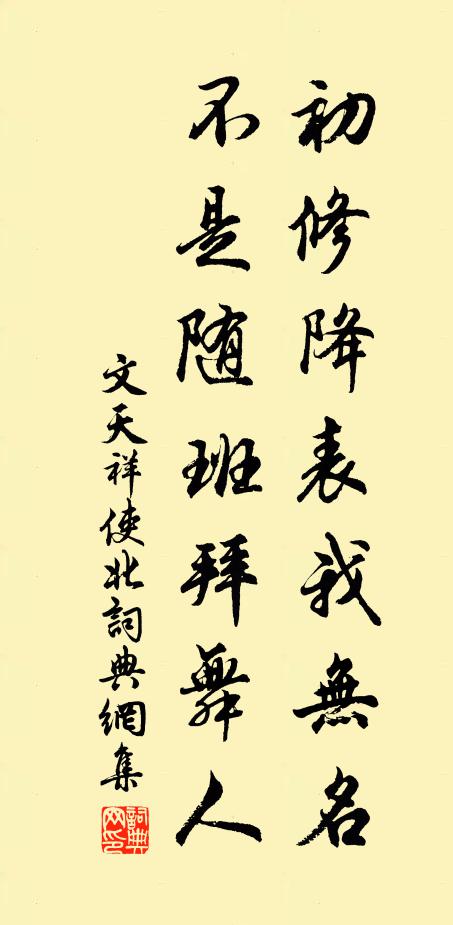 初修降表我無名
不是随班拜舞人
文天祥使北詞典網集
詞典网印